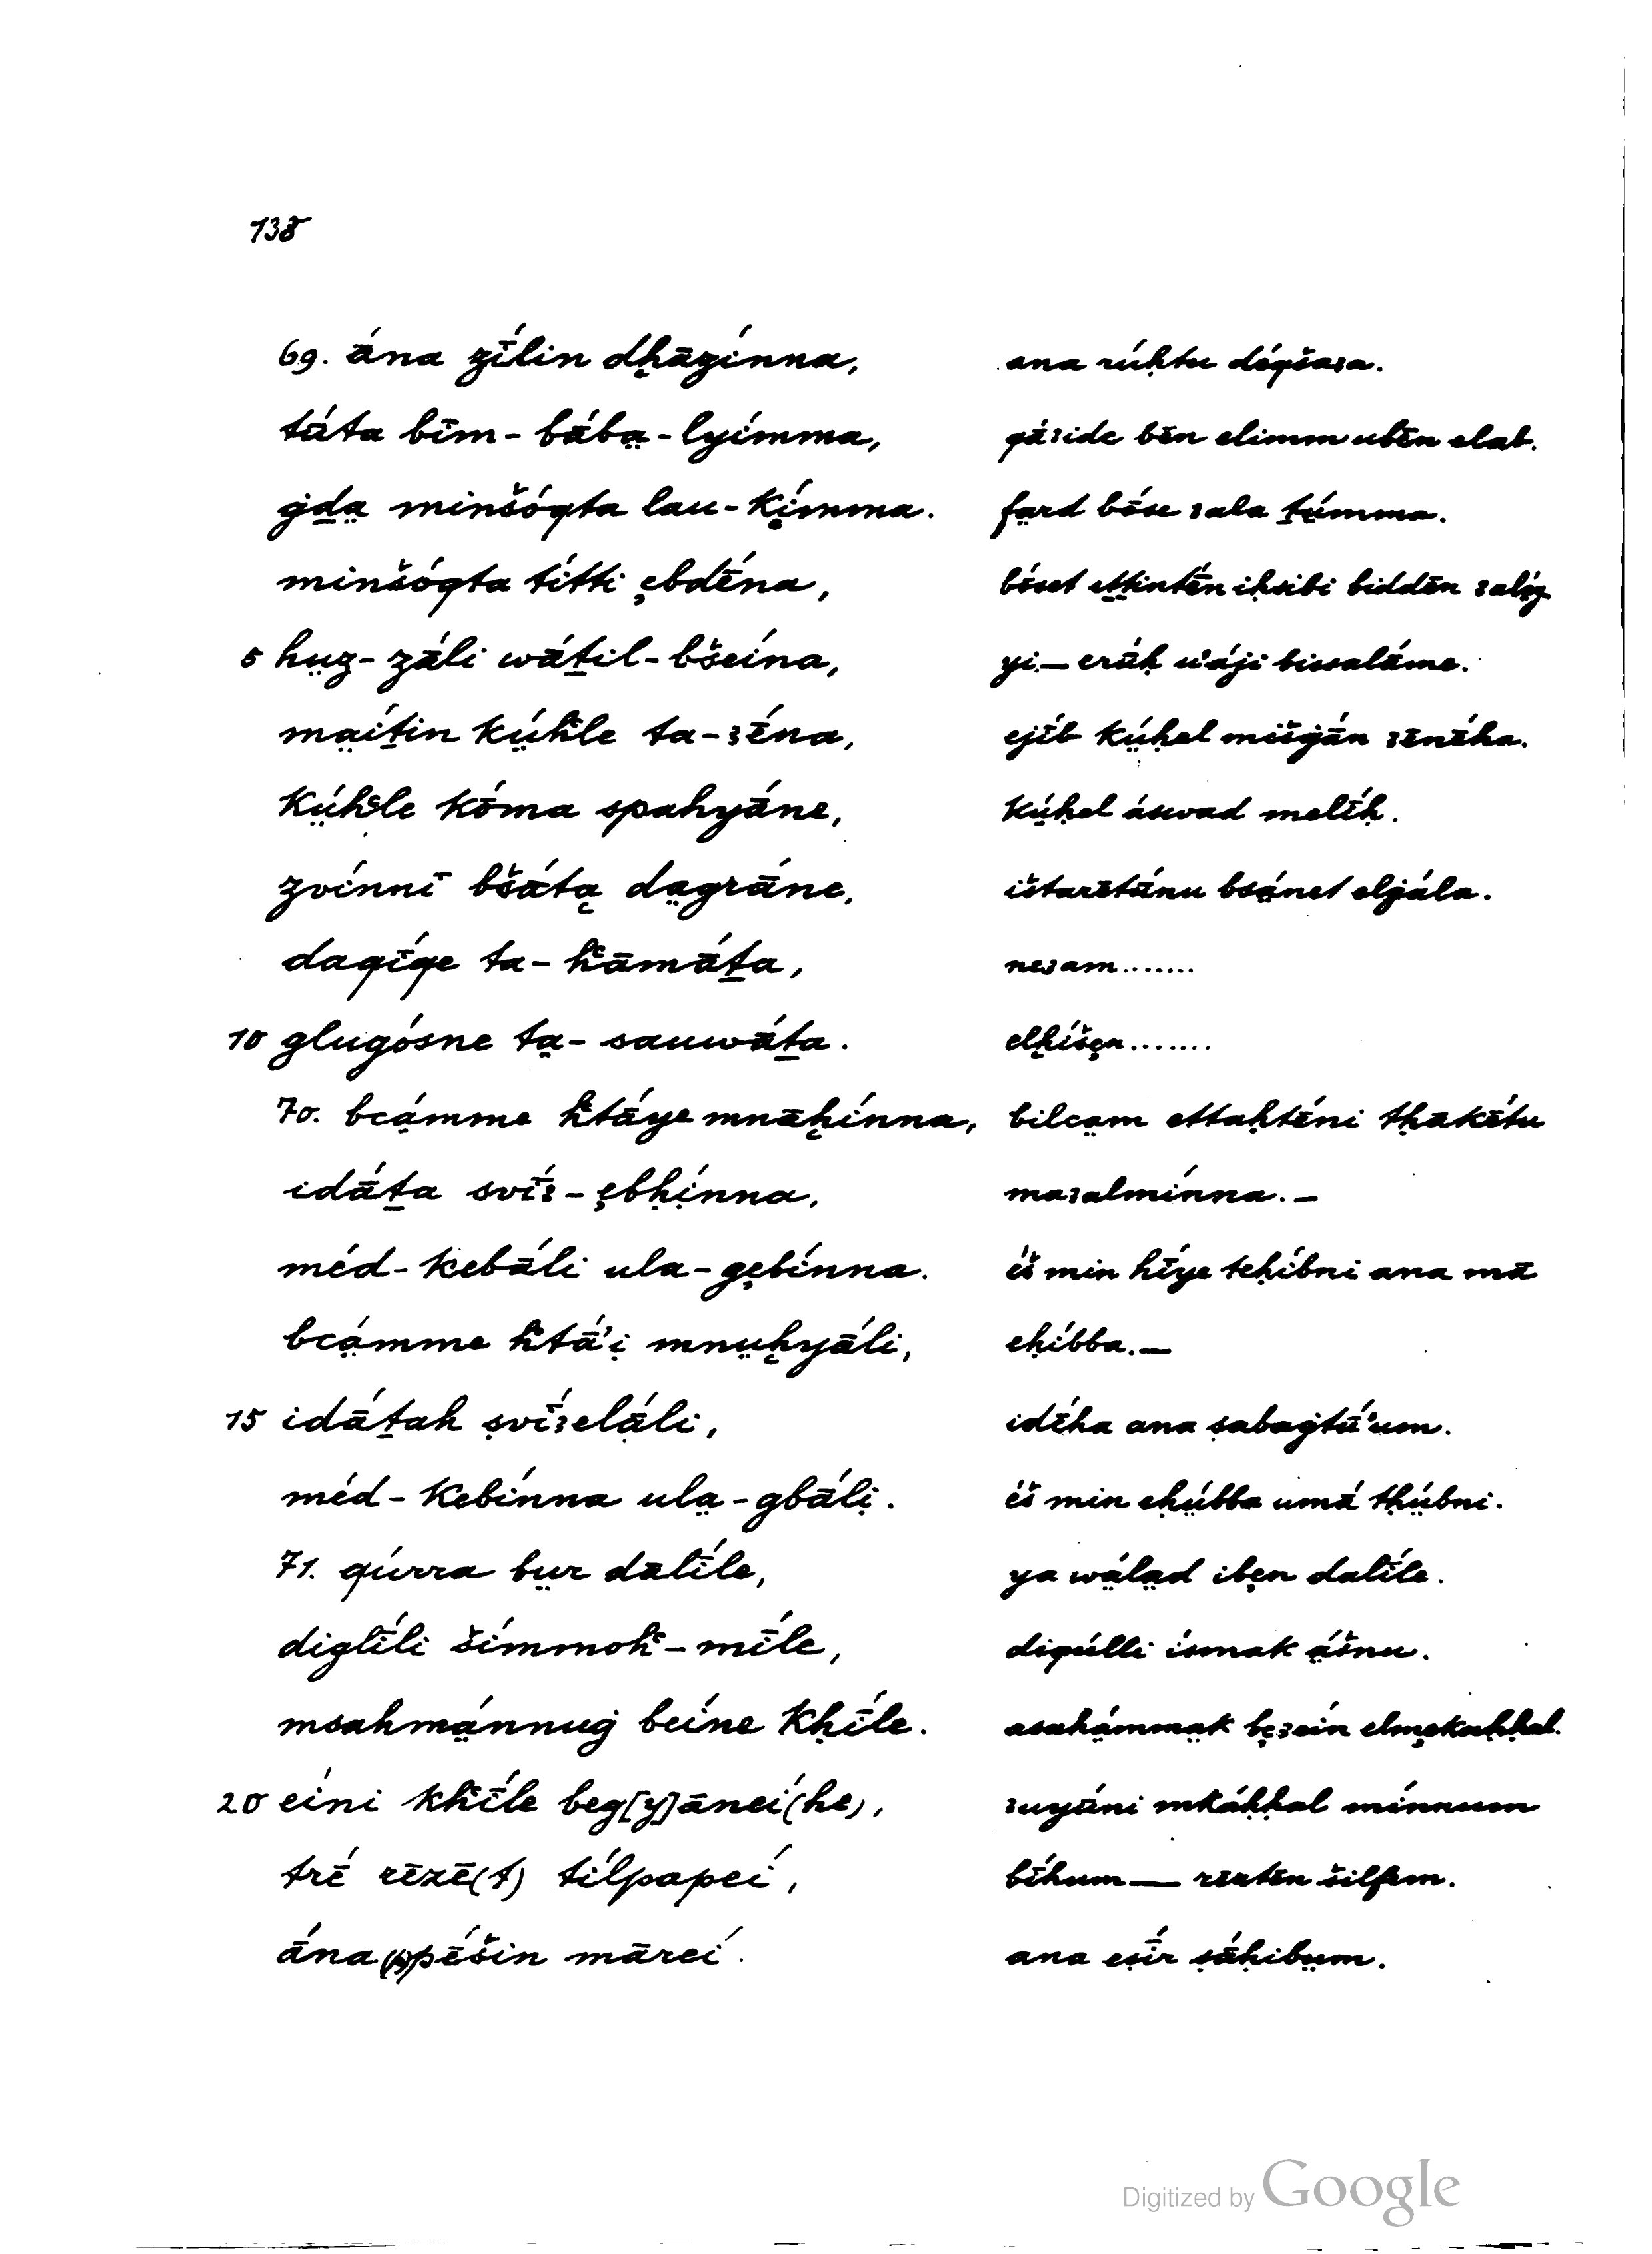 138
69. ā́na zī́lin dḫāzínna,
tū́ta bīm-bā́ba̤-lyímma,
ġḏa̤ minšóqta lau-kímma.
minšóqta títti ebdḗna,
5 hṳz-zā́li wā́ṯil-bšeína,
ma̤íṯin kṳ́ḥle ta-ꜣḗna,
kṳ́ḥle kṓma spahyā́ne,
zvínnī bšā́ta̤ da̤grā́ne,
daqī́qe ta-ḥāmā́ṯa,
10 glugósne ta̤-sauwā́ṯa.
70. bcạ́mme ḥtā́ye mnāḫínna,
idā́ṯa svī́ꜣ-ebḥínna,
méd-kebā́li ula-gebínna.
bcạ́mme ḥtā́'ị mnṳḫyā́li,
15 idā́ṯah ṣvī́ꜣelā́li,
méd-kebínna ula̤-gbā́lị.
71. qúrra bṳr dālī́le,
diglī́li šímmoḥ-mī́le,
msahmá̤nnuġ beíne kḥī́le.
20 eíni kḥī́le beg[y]ānеí(he),
trḗ rēzē(t) tílpapeí,
ā́na (p)pḗšin māreí.
ana rúḥtu dóqšaꜣa.
qā́ꜣide bēn elimm ubēn elab.
fa̤rd bōse ꜣala ṯṳ́mma.
bóset eṯṯintḗn iḥsibi biddēn
yi.— erūḥ u'áji bissalā́me.
ejī́b kṳ́ḥel mišġā́n ꜣēnḗha.
kṳ́ḥel áswad melī́ḥ.
ištarētū́nu bsá̤net elġála.
neꜣam.......
elḫíšen.......
bilcạm ettaḥtḗni tḥākḗtu
maꜣalmínna.—
éš min hī́ye teḥíbni ana mā
eḥíbba.—
idḗha ana ṣabaġtū́'um.
éš min eḥṳ́bba umā́ tḥṳ́bni.
ya wá̤la̤d iben dalī́le.
diqúlli ísmak á̤šnu.
asahá̤mma̤k beꜣein elmekaḥḥal.
ꜣuyū́ni mkáḥḥal mínnum
bī́hum — rēztēn šilfem.
ana eṣī́r ṣā́ḥibṳm.
Digitized by Google